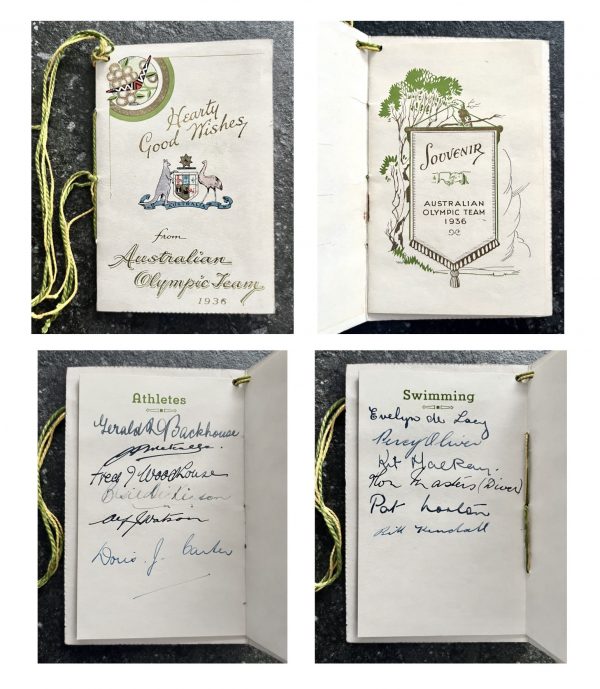 Hearty
Good Wishes
AUSTRALIA
from
Australian
Olympic Team
1936
SOUVENIR
AUSTRALIAN
OLYMPIC TEAM
1936
Athletes
Gerald Backhouse
Fred J Woodhouse
Alf J Watson
Doris J. Carter
Swimming
Evelyn de Lacy
Percy Oliver
Kit Mackay.
Ron Masters (Diver)
Pat Norton
Bill Kendall